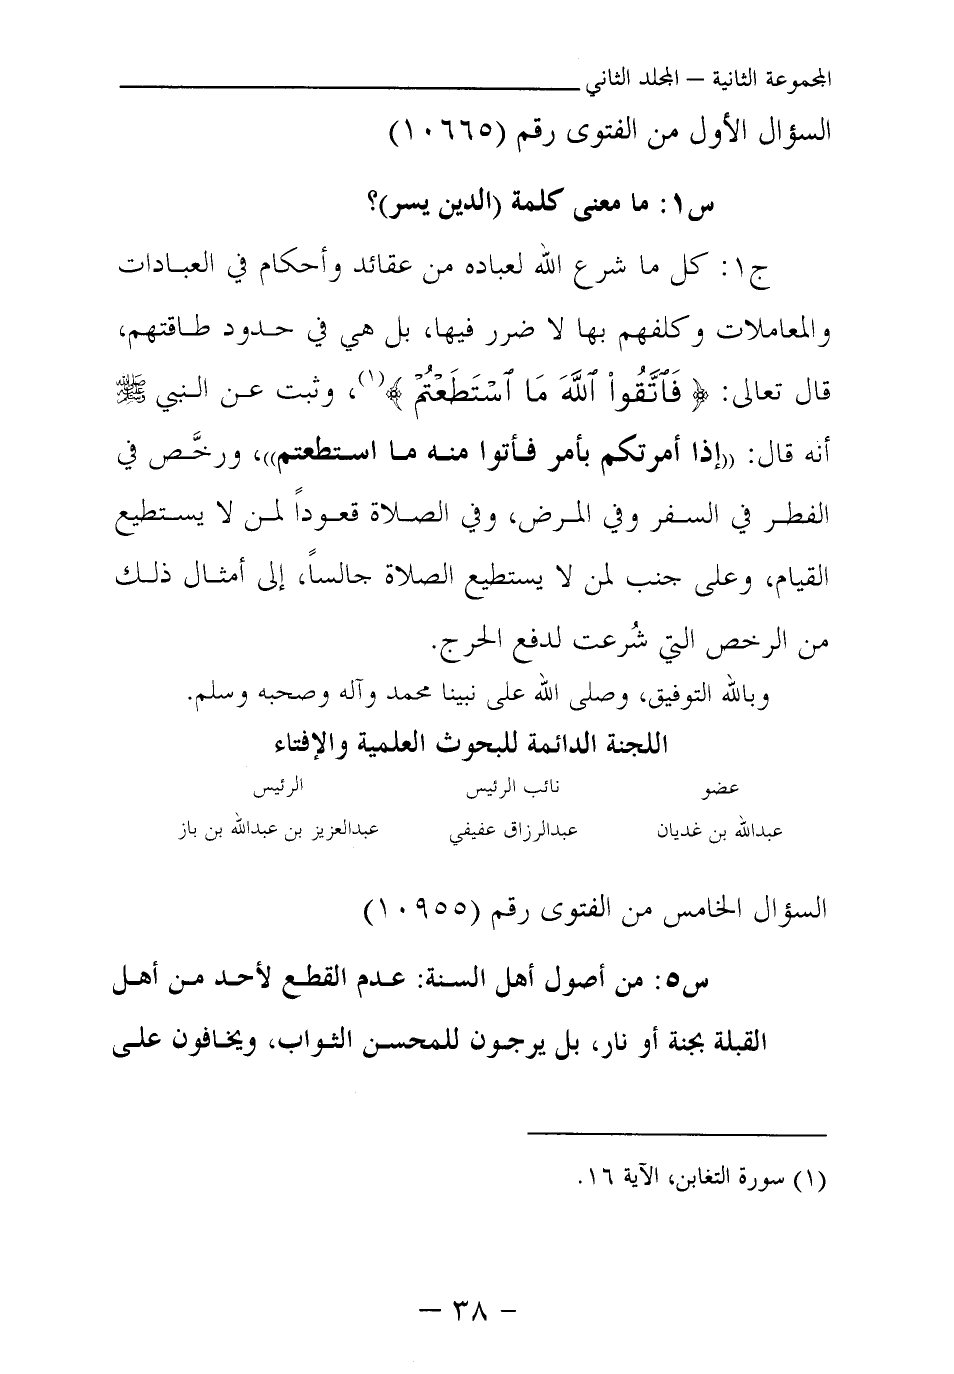 المجموعة الثانية – المجلد الثاني
السؤال الأول من الفتوى رقم (١٠٦٦٥)
س١: ما معنى كلمة (الدين يسر)؟
ج١: كل ما شرع الله لعباده من عقائد وأحكام في العبادات
والمعاملات وكلفهم بها لا ضرر فيها، بل هي في حدود طاقتهم،
قال تعالى: ﴿ فَٱتَّقُوا۟ ٱللَّهَ مَا ٱسْتَطَعْتُمْ ﴾(١)، وثبت عن النبي ﷺ
أنه قال: ((إذا أمرتكم بأمر فأتوا منه ما استطعتم))، ورخَّص في
الفطر في السفر وفي المرض، وفي الصلاة قعوداً لمن لا يستطيع
القيام، وعلى جنب لمن لا يستطيع الصلاة جالساً، إلى أمثال ذلك
من الرخص التي شُرعت لدفع الحرج.
وبالله التوفيق، وصلى الله على نبينا محمد وآله وصحبه وسلم.
اللجنة الدائمة للبحوث العلمية والإفتاء
عضو نائب الرئيس الرئيس
عبدالله بن غديان عبدالرزاق عفيفي عبدالعزيز بن عبدالله بن باز
السؤال الخامس من الفتوى رقم (١٠٩٥٥)
س٥: من أصول أهل السنة: عدم القطع لأحد من أهل
القبلة بجنة أو نار، بل يرجون للمحسن الثواب، ويخافون على
(١) سورة التغابن، الآية ١٦.
– ٣٨ –